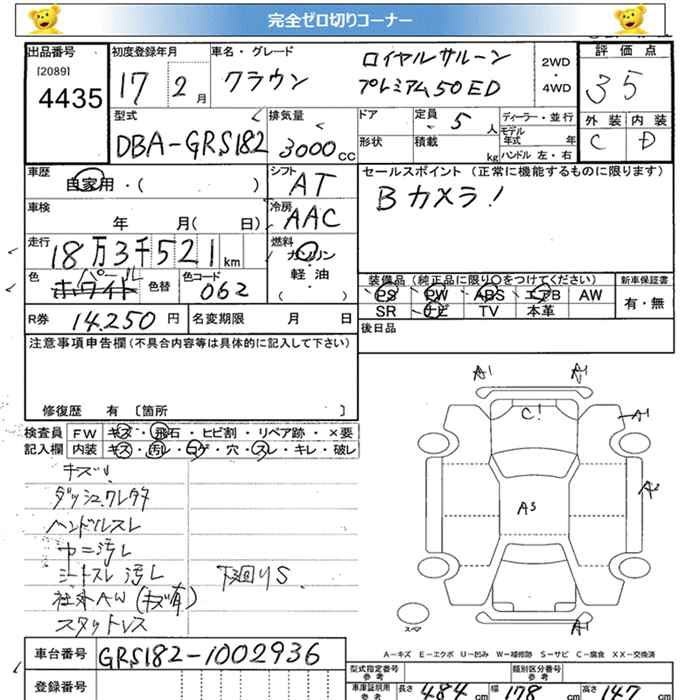 完全ゼロ切りコーナー
出品番号
[2089]
4435
初度登録年月
17 2 月
車名・グレード
クラウン
ロイヤルサルーン
プレミアム50ED
2WD
・
4WD
評価点
35
型式
DBA-GRS182
排気量
3000 CC
ドア
形状
定員
5 人
積載
kg
ディーラー・並行
モデル
年式 年
ハンドル 左・右
外装
C
内装
D
車歴
自家用・( )
シフト
AT
セールスポイント (正常に機能するものに限ります)
Bカメラ!
車検
年 月( 日)
冷房
AAC
走行
18万3千521 km
燃料
ガソリン
軽・油
( )
色
ホワイト
パール
色替
色コード
062
装備品 (純正品に限り○をつけてください)
新車保証書
PS PW ABS エアB AW
SR ナビ TV 本革
有・無
R券
14,250 円
名変期限 月 日
後日品
注意事項申告欄 (不具合内容等は具体的に記入して下さい)
修復歴 有 〔箇所 〕
検査員
記入欄
FW キズ・飛石・ヒビ割・リペア跡・×要
内装 キズ・汚レ・コゲ・穴・スレ・キレ・破レ
キズ
ハンドルスレ
シートスレ 汚レ
下廻りS
社外AW (キズ有)
スタットレス
A1
A1
C!
A1
A2
A3
A1
スペア
A-キズ E-エクボ U-凹み W-補修跡 S-サビ C-腐食 XX-交換済
車台番号
GRS182-1002936
登録番号
型式指定番号
参考
類別区分番号
参考
車庫証明用
参考
長さ 484 cm
幅 178 cm
高さ 147 cm